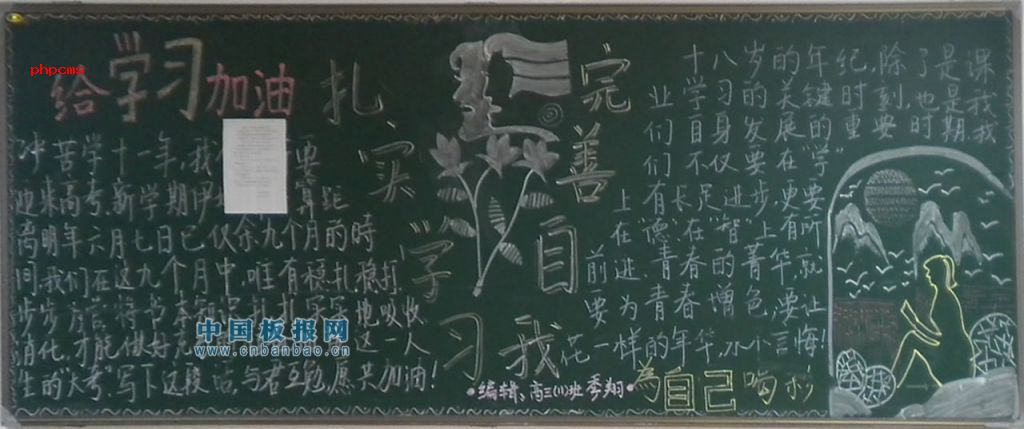 phpcms
给学习加油
苦学十一年,我
要
迎来高考.新学期伊
算距
离明年六月七日已仅余九个月的時
间我们在这九个月中,唯有稳扎稳打
步步
将书本
地吸收
消化,才能做好
这一人
生的"大考".写下这段话,与君互勉,愿共加油!
扎实学习
完善自我
十八岁的年纪,除了是课
业学习的关键时刻,也是我
们自身发展的重要时期.我
们仅要在"学"
上有长足进步,更要
在"德",在"智"上有所
前进.青春的菁华,就
要为青春增色,要让
花一样的年华,不言悔!
為自己喝彩
编辑、高三(1)班 季翔
中国板报网
www.cnbanbao.cn